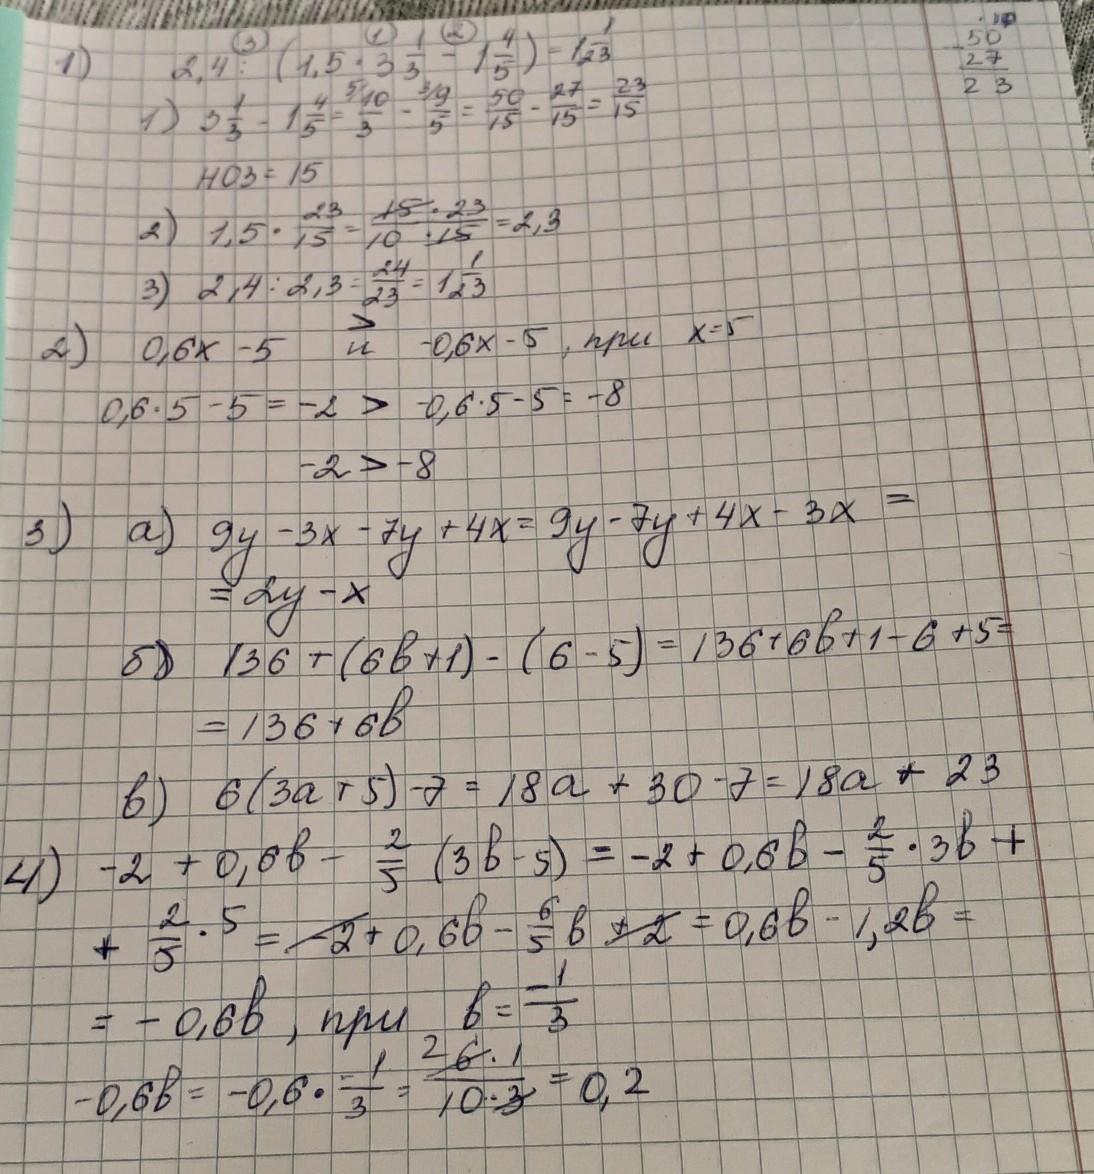 ③ ① ②
1) 2,4 : (1,5 · 3 1/3 - 1 4/5) = 1 1/23
1) 3 1/3 - 1 4/5 = 5/10/3 - 3/9/5 = 50/15 - 27/15 = 23/15
50
27
23
НОЗ = 15
2) 1,5 · 23/15 = 15 · 23/10 · 15 = 2,3
3) 2,4 : 2,3 = 24/23 = 1 1/23
>
2) 0,6x - 5 и -0,6x - 5, при x = 5
0,6·5 - 5 = -2 > -0,6·5 - 5 = -8
-2 > -8
3) а) 9y - 3x - 7y + 4x = 9y - 7y + 4x - 3x =
= 2y - x
б) 136 + (6в + 1) - (6 - 5) = 136 + 6в + 1 - 6 + 5 =
= 136 + 6в
в) 6(3a + 5) - 7 = 18a + 30 - 7 = 18a + 23
4) -2 + 0,6в - 2/5 (3в - 5) = -2 + 0,6в - 2/5 · 3в +
+ 2/5 · 5 = -2 + 0,6в - 6/5 в + 2 = 0,6в - 1,2в =
= - 0,6в, при в = -1/3
-0,6в = -0,6 · -1/3 = 2 6·1/10·3 = 0,2